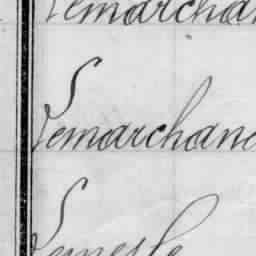 Lemarchan
Lemarchand
Lemesle